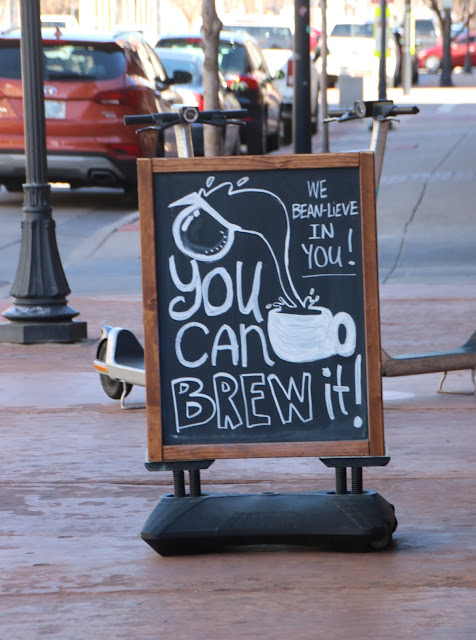 WE
BEAN-LiEVE
IN
YOU!
YOU
CAN
BREW it!